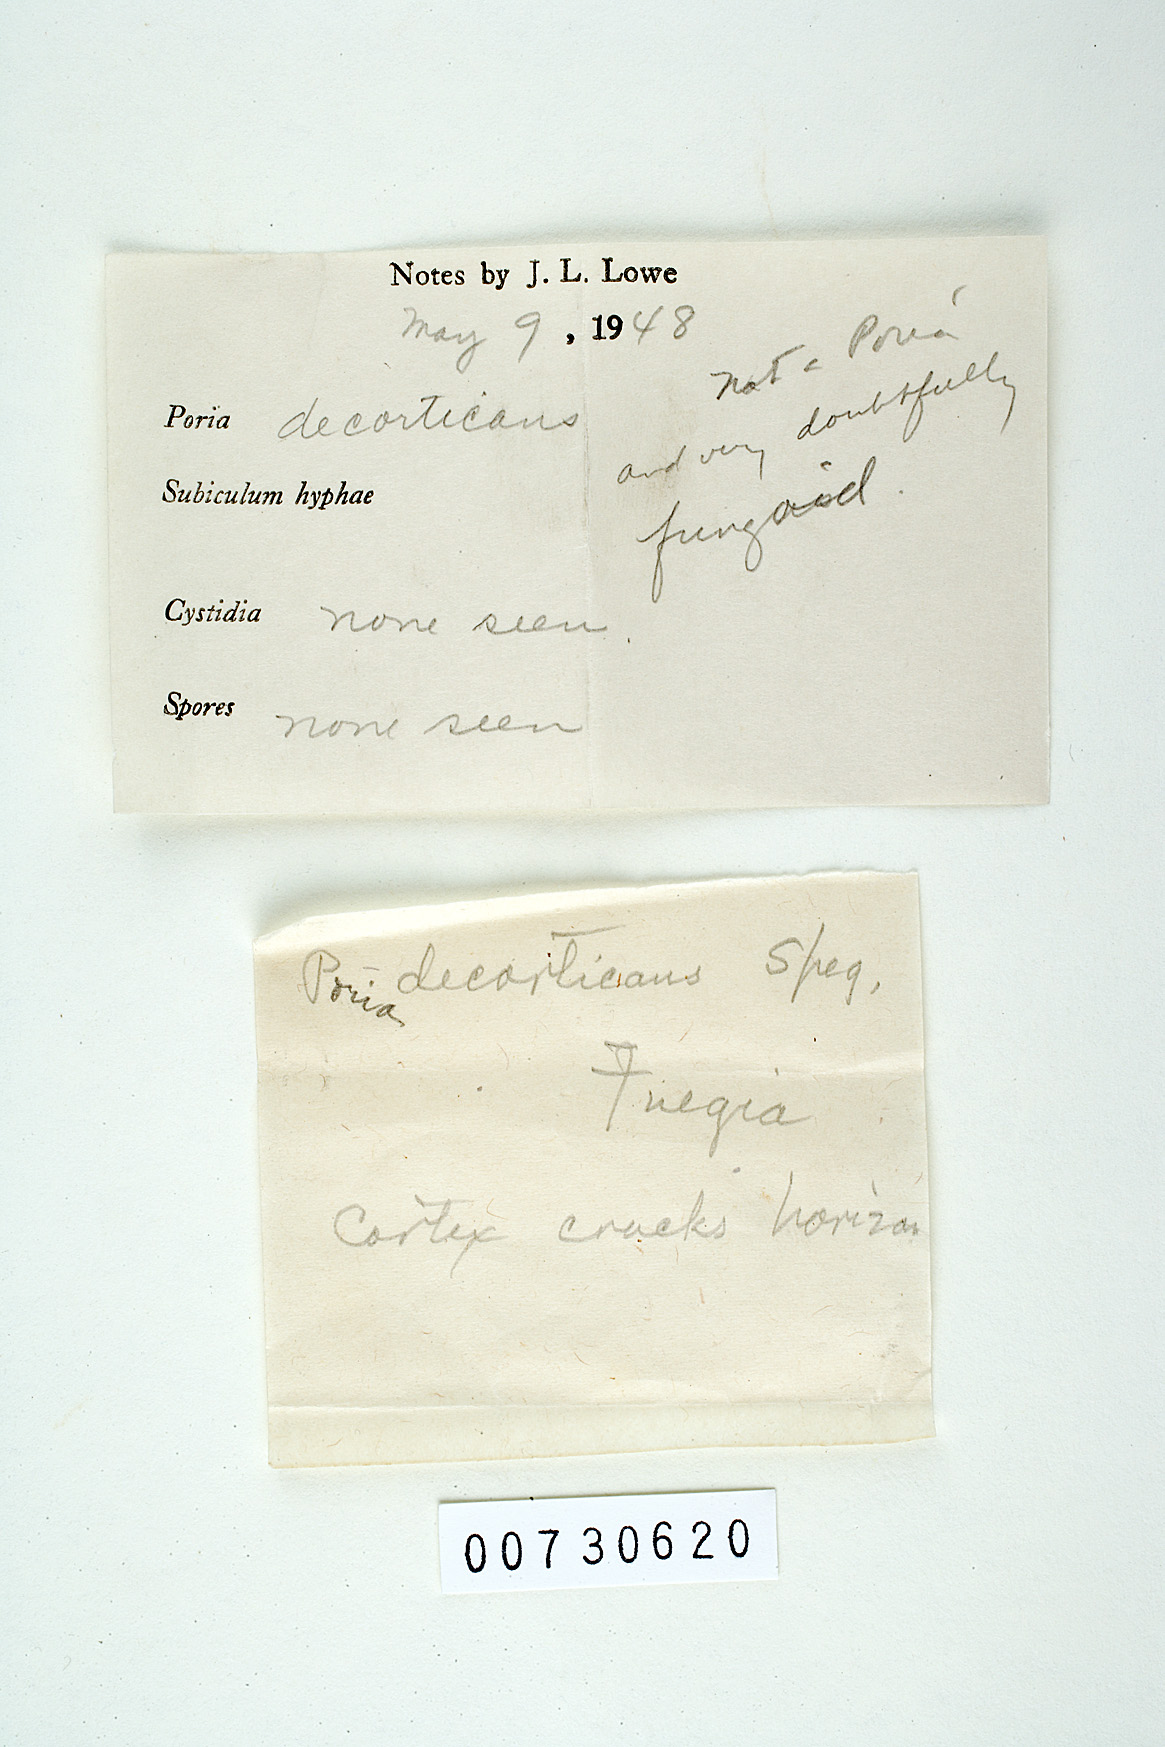 Notes by J. L. Lowe
May 9, 1948
Poria decorticans
Subiculum hyphae
Cystidia none seen.
Spores none seen
not a Poria
and very doubtfully
fungoid.
Poria decorticans Speg.
Fuegia
Cortex cracks horizon
00730620